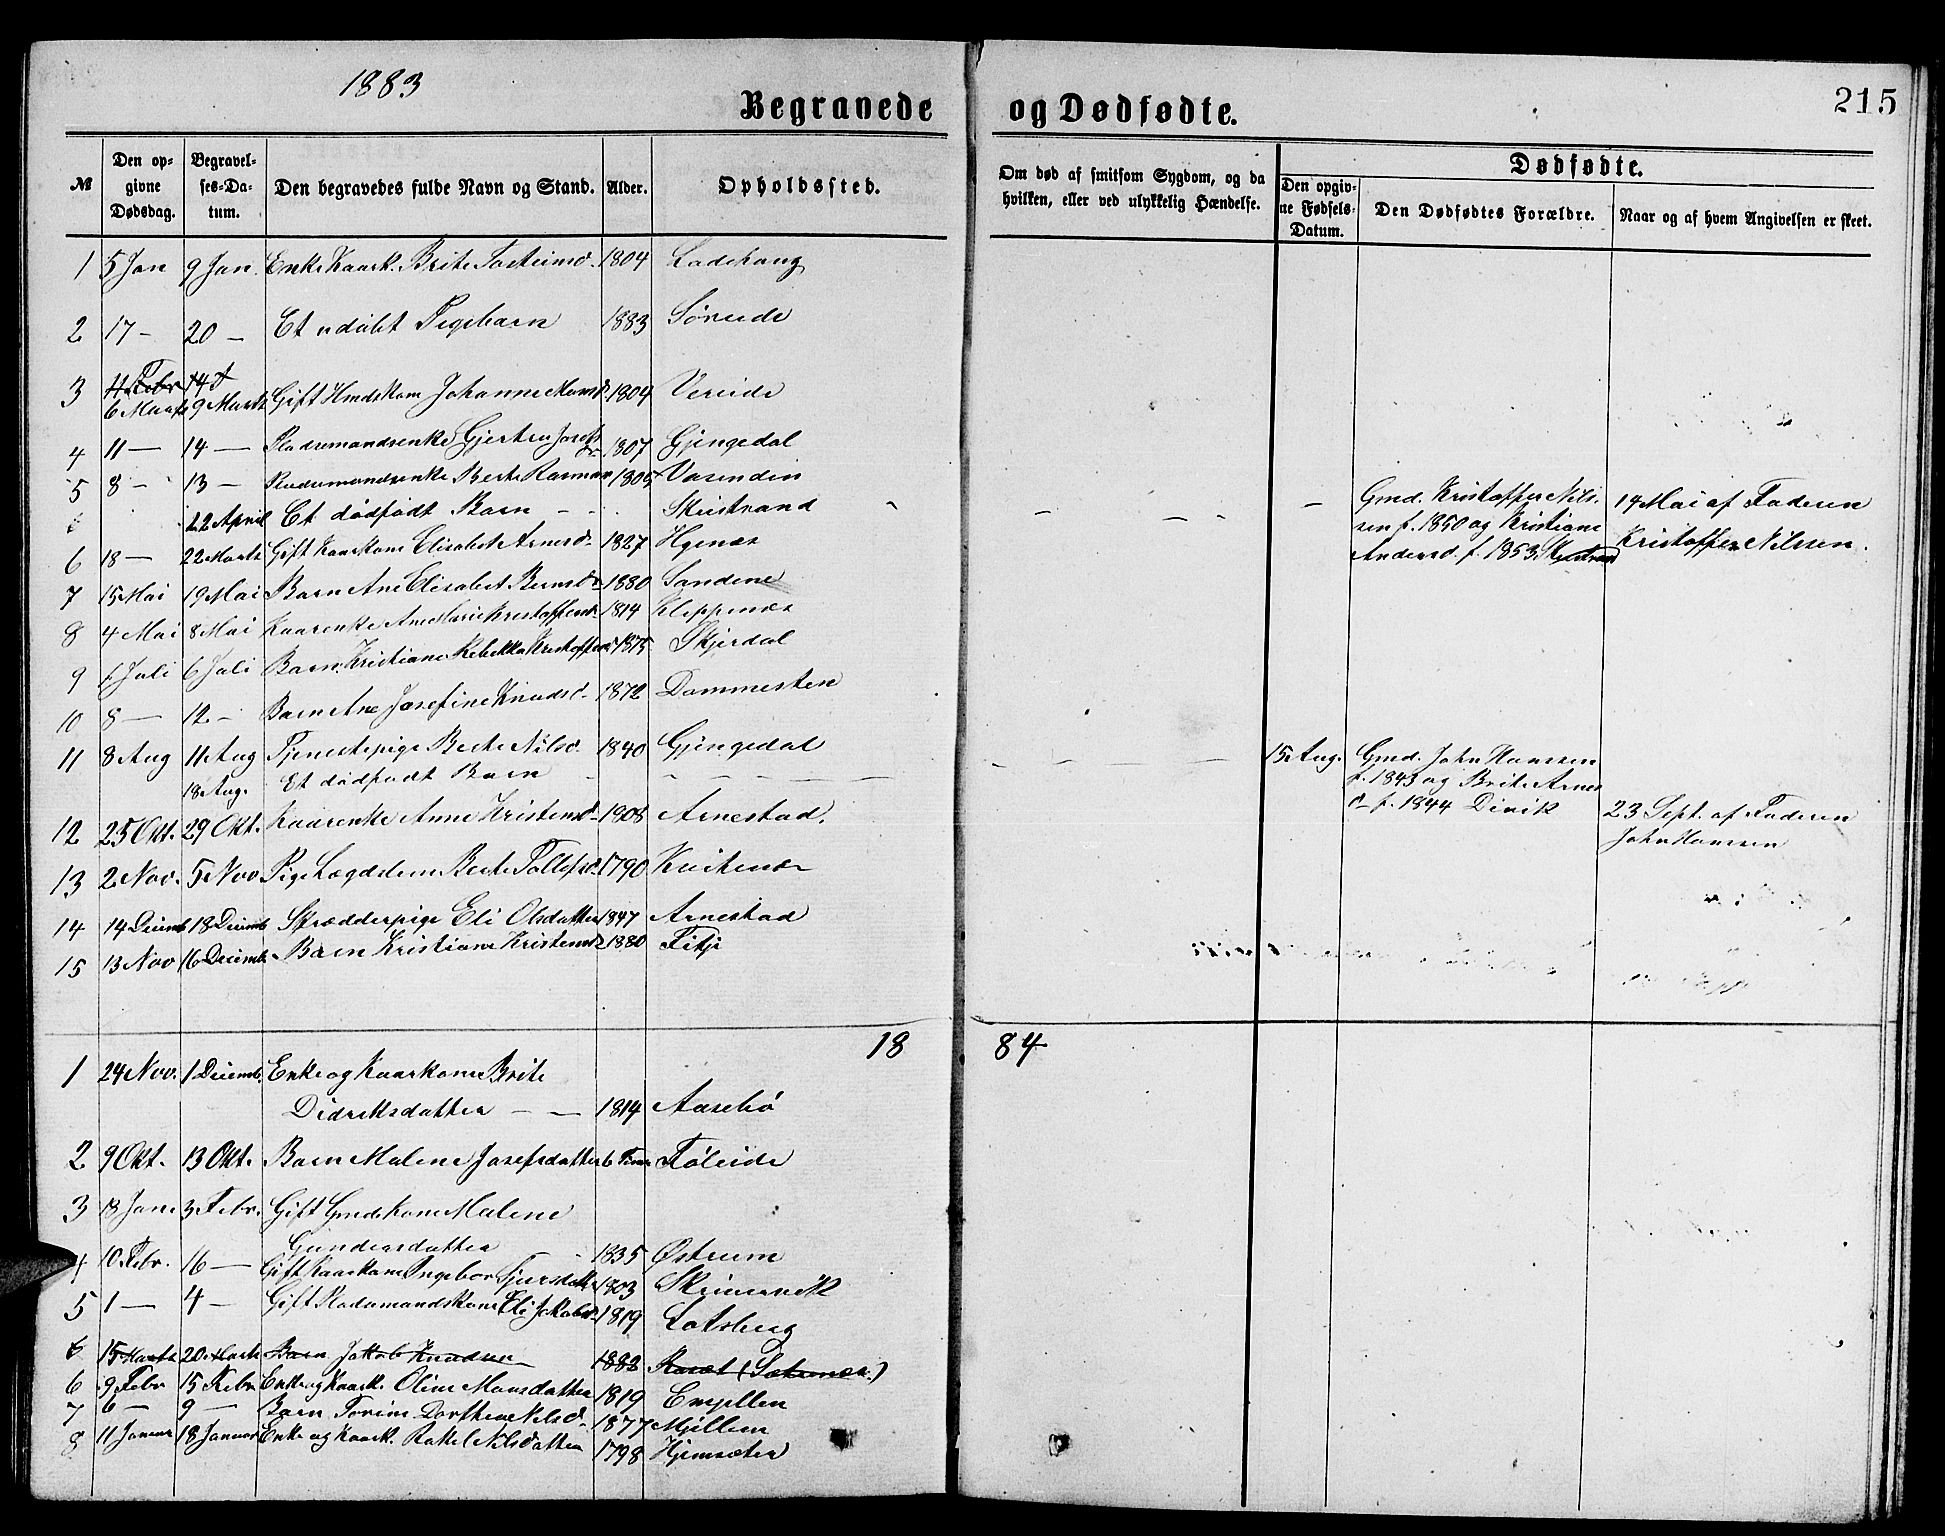 1883
Begravede og Dødfødte.
215
№ Den opgivne Dødsdag. Begravelses-Datum. Den begravedes fulde Navn og Stand. Alder. Opholdssted.
Om død af smitsom Sygdom, og da hvilken, eller ved ulykkelig Hændelse.
Dødfødte.
Den opgivne Fødsels-Datum. Den Dødfødtes Forældre. Naar og af hvem Angivelsen er skeet.
1 5 Jan 9 Jan. Enke Kaark. Brite 1804
2 17 - 20 - Et udøbt Pigebarn 1883 Søreide
4 Febr 14
3 6 Marts 9 Marts Gift Johanne Monsd. 1804 Vereide
4 11 - 14 - Pladsmandsenke Gjertru Josefs 1807 Gjengedal
5 8 - 13 - Pladsmandsenke Berte Rasmus 1805 Vasenden
22 April Et dødfødt Barn - - Skeistrand - - - - -
Gmd. Kristoffer Nils-
sen f. 1850 og Kristiane
Andersd. f. 1853.
19 Mai af Faderen
Kristoffer Nilssen.
6 18 - 22 Marts Gift Kaarkone Elisabet Arnesd. 1827 Hjenæs
7 15 Mai 19 Mai Barn Ane Elisabet 1880 Sandene
8 4 Mai 8 Mai Kaarenke Ane Marie Kristoffersd. 1814 Kleppenæs
9 Juli 6 Juli Barn Kristiane Rebekka 1875 Skjerdal
10 8 - 12 - Barn Ane Josefine Knudsd. 1872 Dommesten
11 8 Aug 11 Aug Tjenestepige Berte Nilsd. 1840 Gjengedal
18 Aug. Et dødfødt Barn - - - - - -
15 Aug. Gmd. John Hanssen
f. 1843 og Brite Arnes
d. f. 1844 Divik
23 Sept. af Faderen
John Hanssen
12 25 Okt. 29 Okt. Kaarenke Anne Kristensd. 1808 Arnestad.
13 2 Nov. 5 Nov Pige Lægdslem Berte Tollefsd. 1790 Kvitenæs
14 14 Decemb 18 Decemb Skrædderpige Eli Olsdatter 1847 Arnestad
15 13 Nov 16 Decemb. Barn Kristiane Kristensd. 1880 Fitje
1884
1 24 Nov. 1 Decemb. Enke og Kaarkone Brite
Didriksdatter - - 1814 Aasebø
2 9 Okt. 13 Okt. Barn Malene Josefsdatter 6 Føleide
3 18 Jan 3 Febr. Gift Gmdskone Malene
Gundersdatter 1835 Østrem
4 10 Febr. 16 - Gift Kaarkone Ingebor 1803
5 1 - 4 - Gift Pladsmandskone Eli Jakobsd. 1819 Lotsberg
6 15 Marts 20 Marts Barn Jakob Knudsen 1882
6 9 Febr 15 Febr Enke og Kaark. Oline Monsdatter 1819
7 6 - 9 - Barn Dorthea Nilsd. 1877
8 11 Januar 18 Januar Enke og Kaark. Rakel Nilsdatter 1798 Hjemsæter